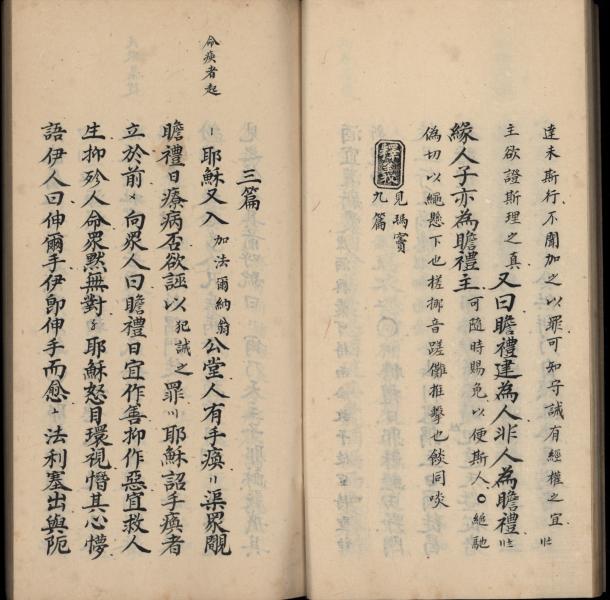 達未斯行不聞加之以罪可知守誡有經權之宜
主欲證斯理之真
又曰瞻禮建為人非人為瞻禮
緣人子亦為瞻禮主
可隨時賜免以便斯人○絕馳
偽切以繩懸下也搓挪音蹉儺推擊也餤同啖
見瑪竇
九篇
三篇
命瘓者起
耶穌又入
加法爾納翁
公堂人有手瘓
渠眾覸
瞻禮日療病否欲誣以
犯誡之
罪
耶穌詔手瘓者
立於前
向眾人曰瞻禮日宜作善抑作惡宜救人
生抑殄人命眾默無對
耶穌怒目環視憯其心懜
語伊人曰伸爾手伊即伸手而愈
法利塞出與阨